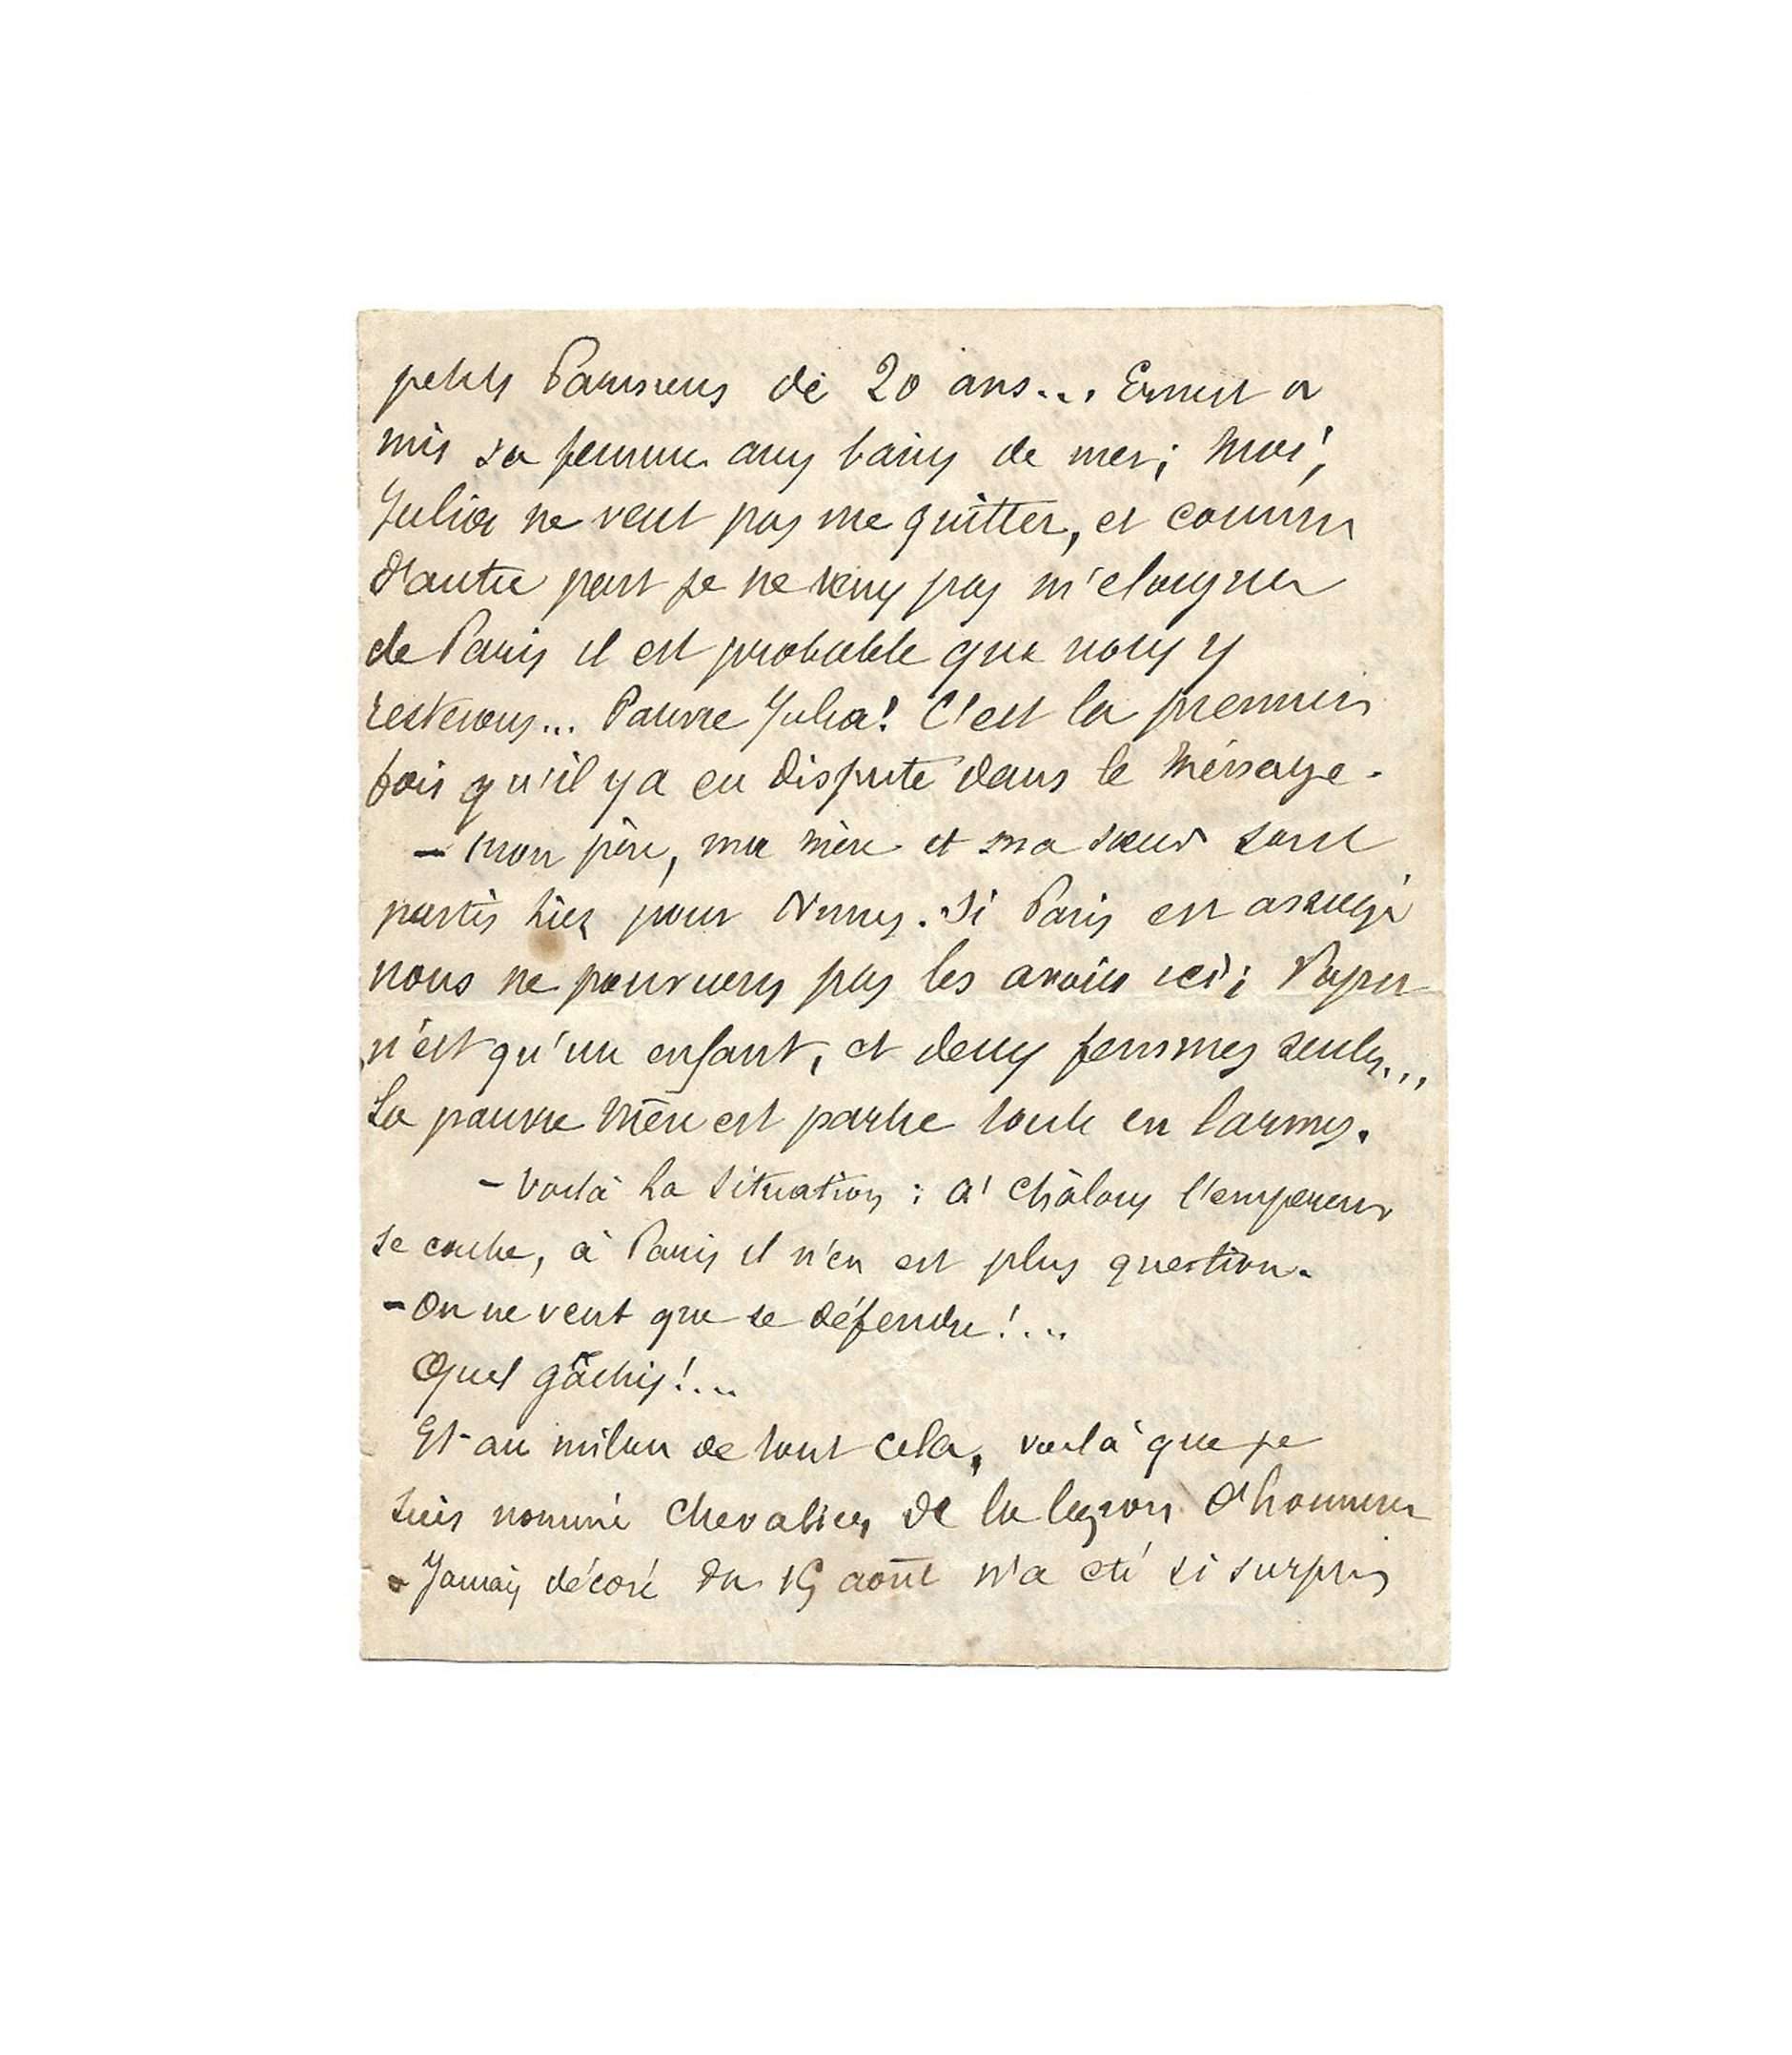 petits Parisiens de 20 ans... Ernest a
mis sa femme aux bains de mer; moi,
Julia ne veut pas me quitter, et comme
d'autre part je ne veux pas m'eloigner
de Paris il est probable que nous y
resterons... Pauvre Julia! C'est la première
fois qu'il y a eu dispute dans le ménage.
– Mon père, ma mère et ma sœur sont
partis hier pour Nimes. Si Paris est assiégé
nous ne pourrions pas les avoir ici; Papa
n'est qu'un enfant, et deux femmes seules...
La pauvre mère est partie toute en larmes.
– Voilà la situation : à Châlons l'empereur
se cache, à Paris il n'en est plus question.
– On ne veut que se défendre!...
Quel gâchis!...
Et au milieu de tout cela, voilà que je
suis nommé chevalier de la légion d'honneur
– Jamais décoré du 15 août n'a été si surpris